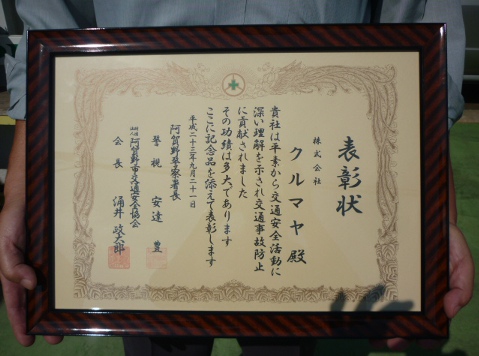 表彰状
株式会社
クルマヤ 殿
貴社は平素から交通安全活動に
深い理解を示され交通事故防止
に貢献されました
その功績は多大であります
ここに記念品を添えて表彰します
平成二十三年九月二十一日
阿賀野警察署長
警視 安達 豊
阿賀野市交通安全協会
会長 涌井 政太郎